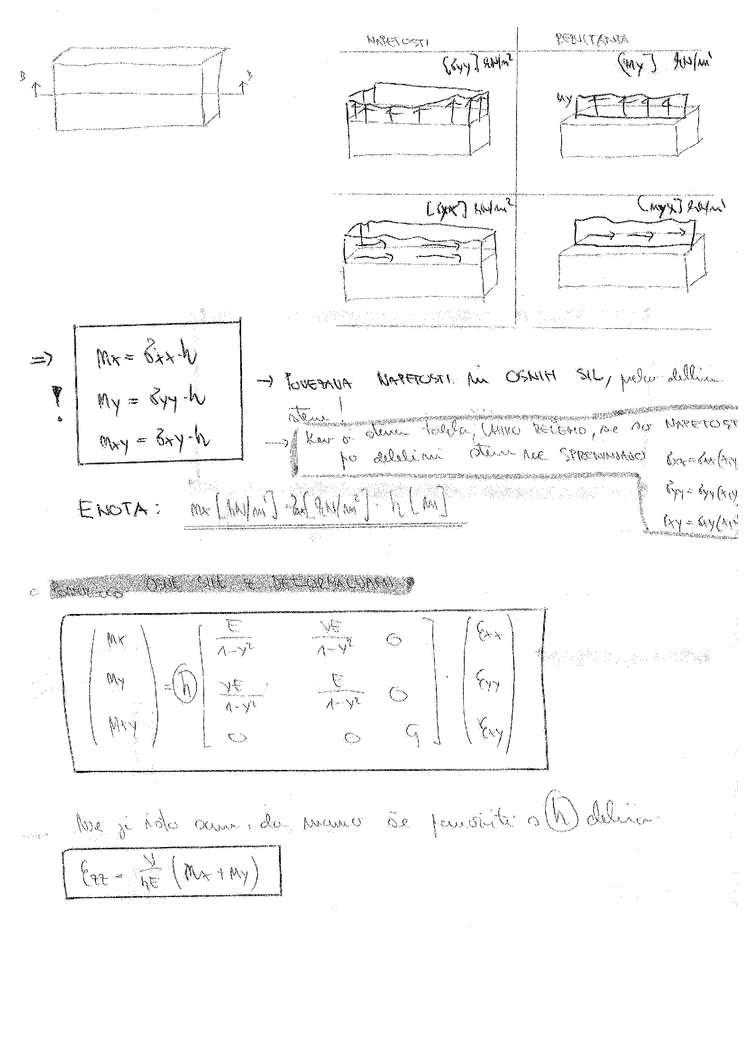 NAPETOSTI
REZULTANTA
[σyy] kN/m²
(my) kN/m'
B
B
my
[σxx] kN/m²
(mxy) kN/m'
⇒ mx = σxx·h
! my = σyy·h
mxy = σxy·h
→ POVEZAVA NAPETOSTI in OSNIH SIL, preko debeline
stene!
→ Ker o stena tanka, LAHKO REČEMO, se so NAPETOST
po debelini stene ne SPREMINJAJO σxx=σxx(x,y
σyy=σyy(x,y
σxy=σxy(x,y
ENOTA: mx[kN/m'] = σxx[kN/m²] · h[m]
OSNE SILE z DEFORMACIJAMI
(mx my mxy) = h [E/1-ν² νE/1-ν² 0
νE/1-ν² E/1-ν² 0
0 0 G] · (εxx εyy εxy)
Vse je isto samo, da moramo še množiti s h
εzz = ν/hE (mx + my)